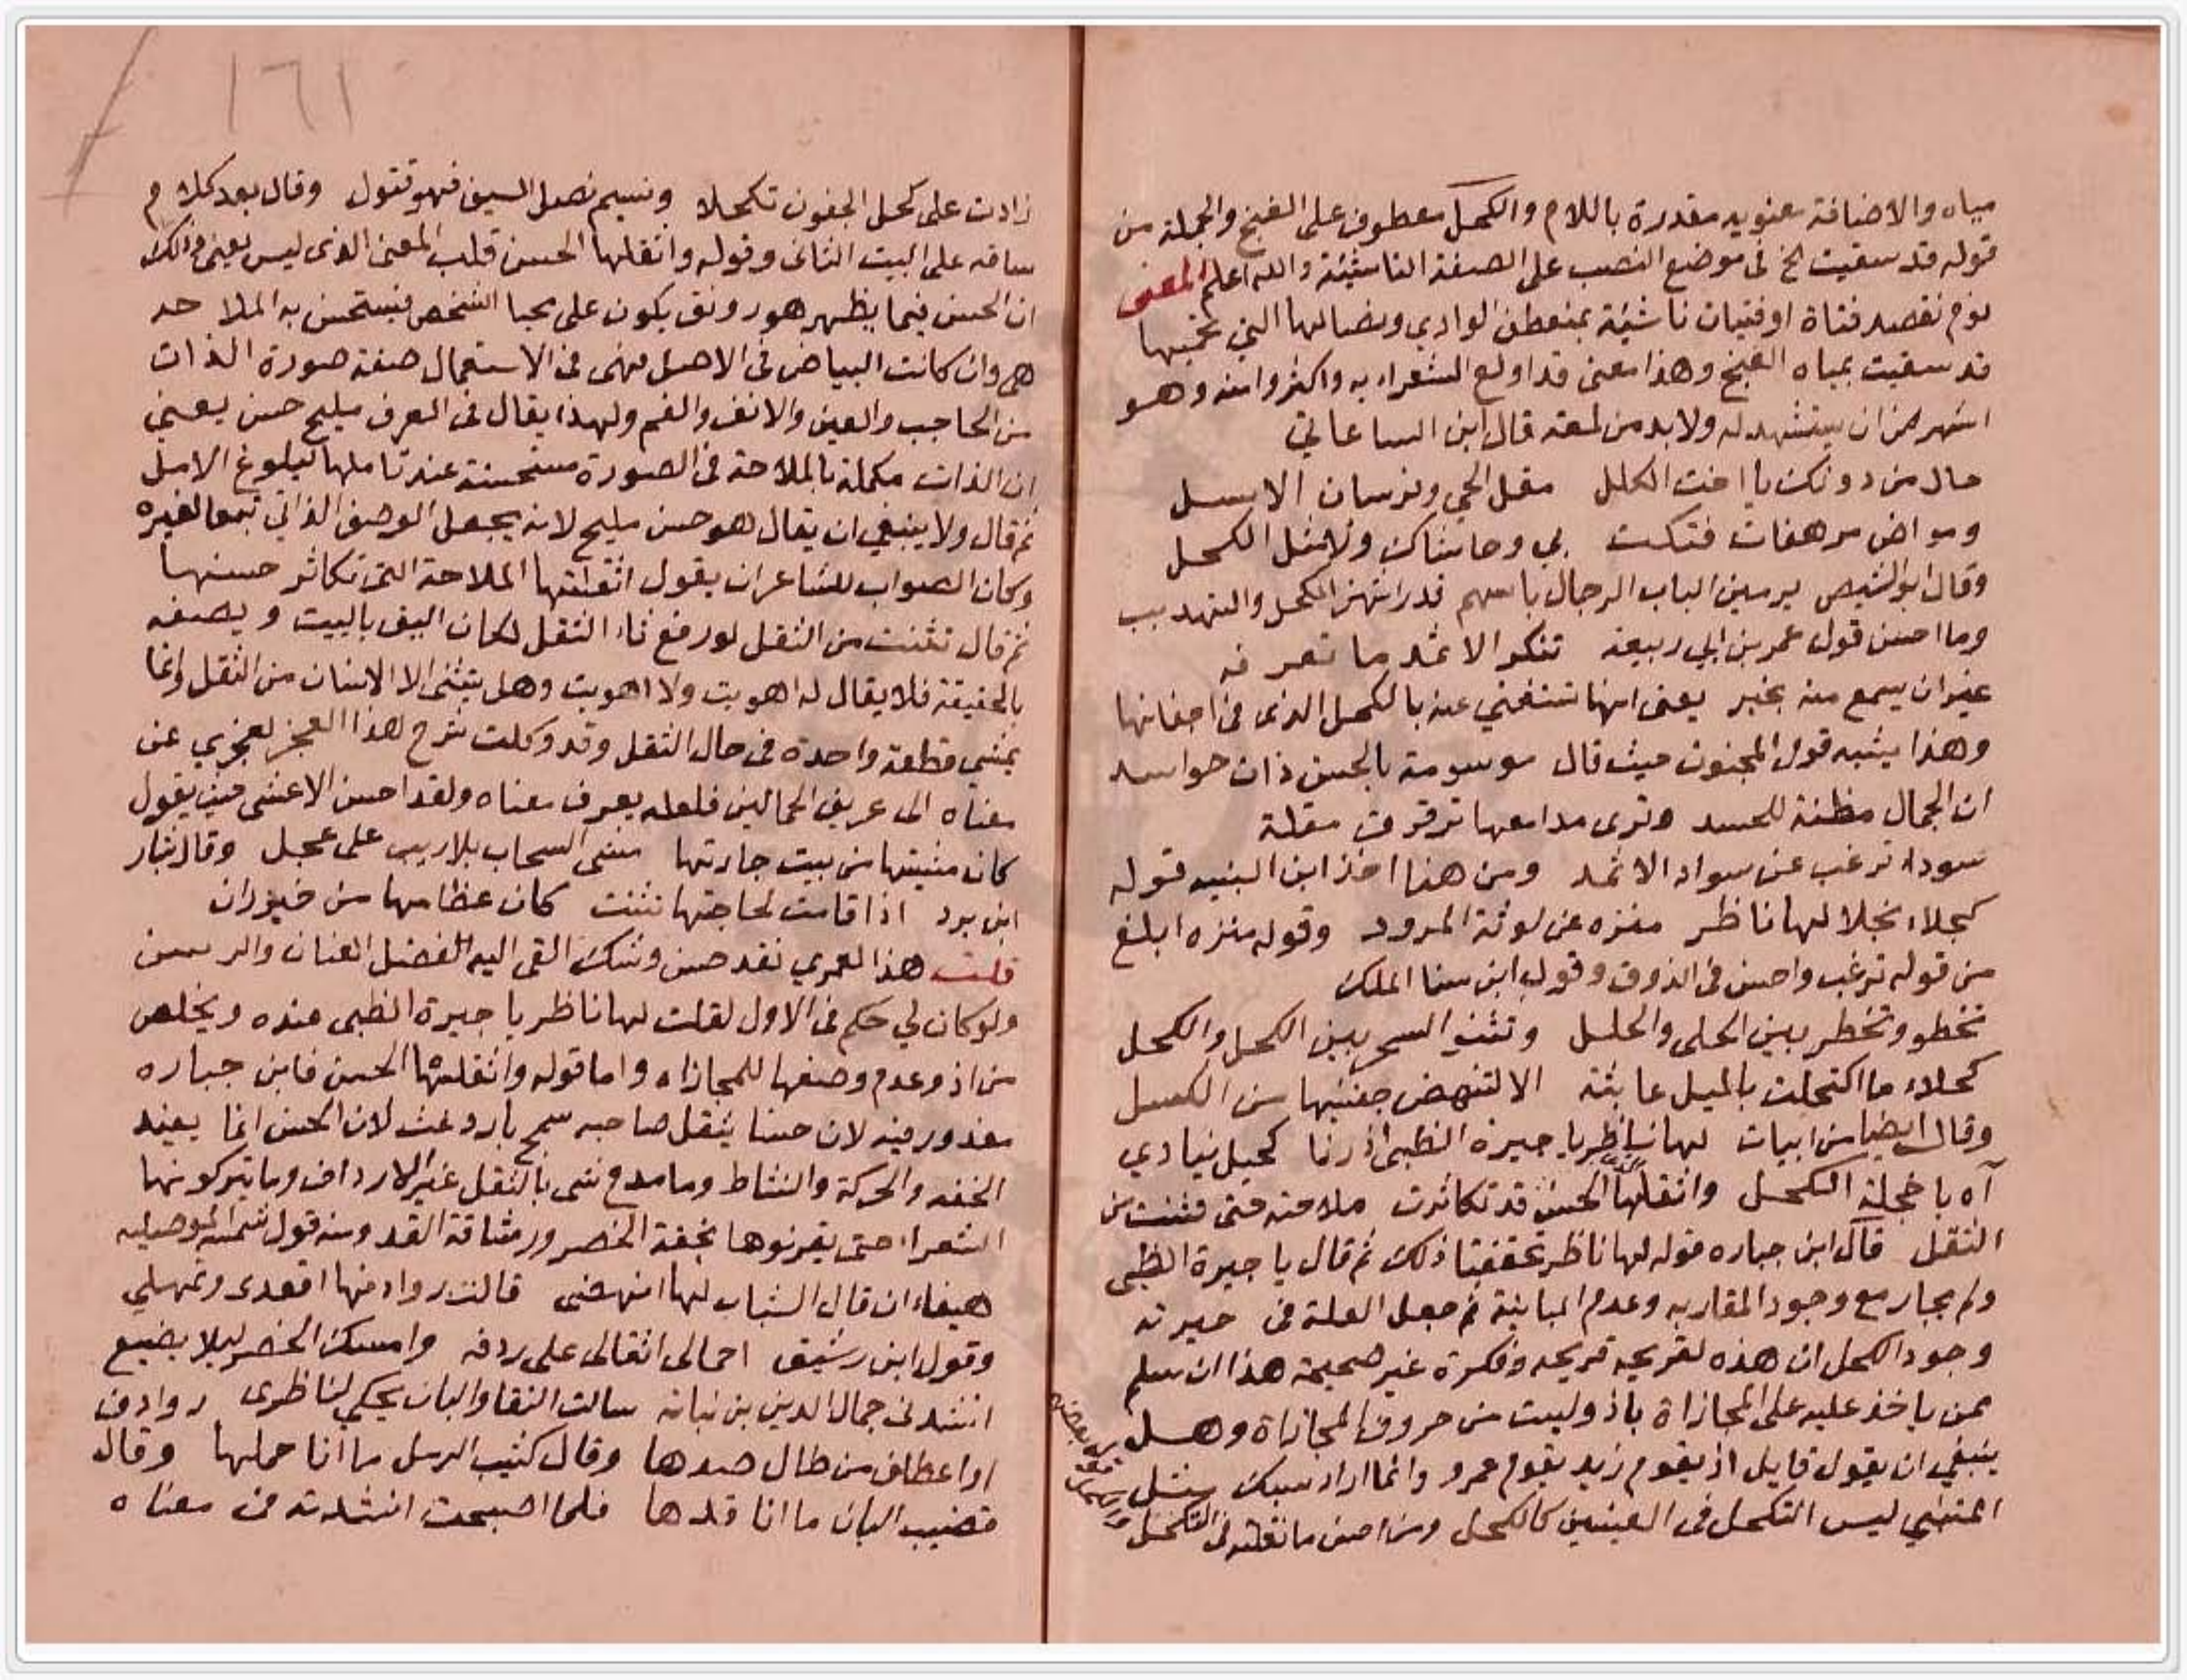 مياه والاضافة معنويه مقدرة باللام والكحل معطوف على الغنج والجملة من
قوله قد سقيت الخ فى موضع النصب على الصفة الناشئة والله اعلم المعنى
نوم نقصد فتاة او فتيات ناشئة بمنعطف الوادي ونصالها التي تحميها
قد سقيت بمياه الغنج وهذا معنى قد اولع الشعراء به واكثروا منه وهو
اشهر من ان يستشهد له ولابد من لمعة قال ابن الساعاتي
حال من دونك يا اخت الكلل مقل الحي وفرسان الاسل
ومواض مرهفات فتكت بي وحاشاك ولا مثل الكحل
وقال ابو الشيص يرمين الباب الرجال باسهم قد راشهن الكحل والتهديب
وما احسن قول عمر بن ابي ربيعة تنكر الاثمد ما تعرفه
غير ان يسمع منه بخبر يعنى انها تستغني عنه بالكحل الذى فى اجفانها
وهذا يشبه قول المجنون حيث قال موسومة بالحسن ذات حواسد
ان الجمال مظنة للحسد وترى مدامعها ترقرق مقلة
سوداء ترغب عن سواد الاثمد ومن هنا اخذ ابن النبيه قوله
كحلاء نجلا لها ناظر منزه عن لوثة المرود وقوله منزه ابلغ
من قوله ترغب واحسن فى الذوق وقول ابن سنا الملك
تخطو وتخطر بين الحلى والحلل وتثنى السحر بين الكحل والكحل
كحلاء ما اكتحلت بالميل عابثة الا لتنهض جفنيها من الكسل
وقال ايضا من ابيات لها ناظر يا حيرة الظبى اذ رنا كحيل ينادي
آه يا خجلة الكحل واثقلها الحسن قد تكاثرت ملاحته حتى تثنت من
الثقل قال ابن جباره قوله لها ناظر تحققنا ذلك ثم قال يا حيرة الظبى
ولم يجار مع وجود المقاربه وعدم المباينة ثم جعل العلة فى حيرته
وجود الكحل ان هذه لقريحه قريحه وفكرة غير صحيحة هذا ان سلم
ممن ياخذ عليه على المجازاة باذ وليست من حروف المجازاة وهل
ينبغي ان يقول قايل اذ يقوم زيد يقوم عمرو وانما اراد سبك مثل
المتنبي ليس التكحل فى العينين كالكحل ومن احسن ما نقلته فى التكحل
١٦١
زادت على كحل الجفون تكحلا ونسيم نصل السيف فهو تقول وقال بعد كلام
ساقه على البيت الثانى وقوله واثقلها الحسن قلب المعنى الذى ليس يعنى ذلك
ان الحسن فيما يظهر هو رونق يكون على محيا الشخص فيستحسن به الملاحه
هى وان كانت البياض فى الاصل فهى فى الاستعمال صفة صورة الذات
من الحاجب والعين والانف والفم ولهذا يقال فى العرف مليح حسن يعني
ان الذات مكملة بالملاحة فى الصورة مستحسنة عند تاملها لبلوغ الامل
ثم قال ولا ينبغي ان يقال هو حسن مليح لانه يجعل الوصف الذاتي تبعا لغيره
وكان الصواب للشاعر ان يقول اثقلتها الملاحة التى تكاثر حسنها
ثم قال تثنت من الثقل لو رفع ثاء الثقل لكان اليق بالبيت ويصفه
بالحقيقة فلا يقال له اهويت ولا اهويت وهل يتثنى الا الانسان من الثقل وانما
يمشي قطعة واحدة فى حال الثقل وقد وكلت شرح هذا العجز لعجزي عن
معناه الى عريف الحمالين فلعله يعرف معناه ولقد احسن الاعشى حين يقول
كان مشيتها من بيت جارتها مشى السحاب بلا ريب على عجل وقال بشار
ابن برد اذا قامت لحاجتها تثنت كان عظامها من خيزران
قلت هذا لعمري نقد حسن وشك القى اليه الفضل العنان والرسن
ولو كان لي حكم فى الاول لقلت لها ناظر يا حيرة الظبى عنده ويخلص
من اذ وعدم وصفها للمجازاه واما قوله واثقلتها الحسن فابن جباره
معذور فيه لان حسنا يثقل صاحبه سمج بارد غث لان الحسن انما يفيد
الخفه والحركة والنشاط وما مدح شى بالثقل غير الارداف وما يتركونها
الشعراء حتى يقرنوها بخفة الخصر ورشاقة القد ومنه قول شمسة الموصليه
هيفاء ان قال الشباب لها انهضى قالت روادفها اقعدى وتمهلي
وقول ابن رشيق احمالى اثقالى على ردفه وامسك الخصر ليلا يضيع
انشدنى جمال الدين بن نباته سالت النقا والبان يحكى لناظرى روادف
او اعطاف من طال صدها وقال كثيب الرمل ما انا حملها وقال
قضيب البان ما انا قدها فلما اصبحت انشدته فى معناه